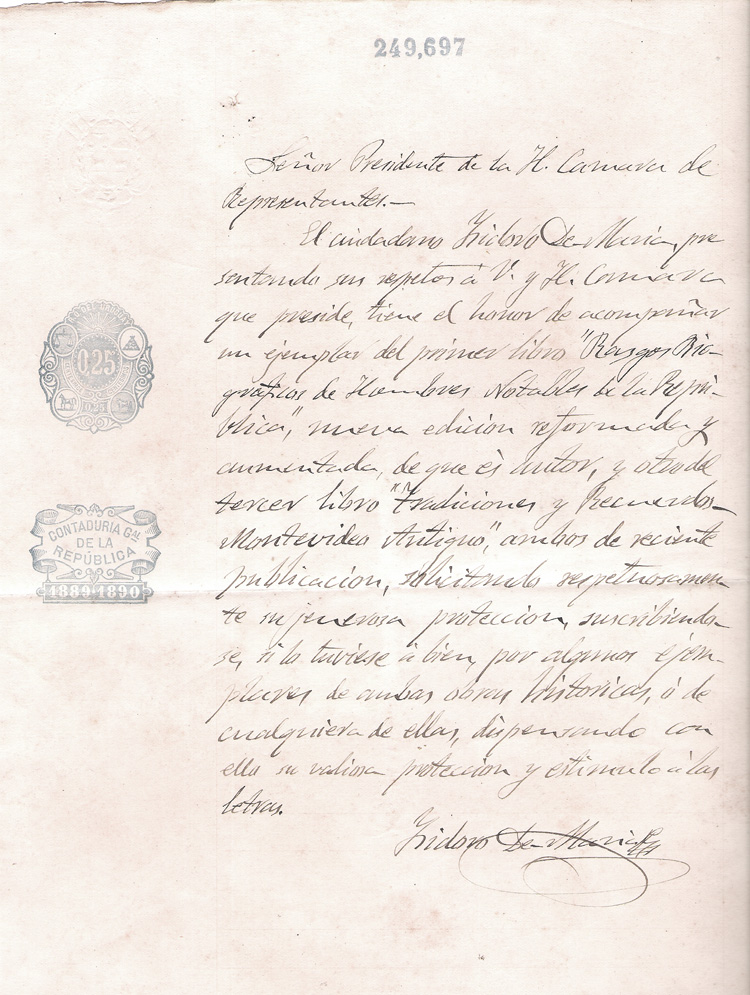 249,697
Señor Presidente de la H. Camara de
Representantes.—
El ciudadano Isidoro De-Maria, pre
sentando sus respetos á V. y H. Camara
que preside, tiene el honor de acompañar
un ejemplar del primer libro "Rasgos Bio-
gráficos de Hombres Notables de la Repú-
blica", nueva edicion reformada y
aumentada, de que és autor, y otro del
tercer libro "Tradiciones y Recuerdos—
Montevideo Antiguo", ambos de reciente
publicacion, solicitando respetuosamen
te su jenerosa proteccion, suscribiendo—
se, si lo tuviese á bien, por algunos ejem-
plares de ambas obras historicas, ó de
cualquiera de ellas, dispensando con
ello su valiosa proteccion y estimulo á las
letras.
Isidoro De-Maria
0,25
CONTADURIA GAL
DE LA
REPÚBLICA
1889-1890